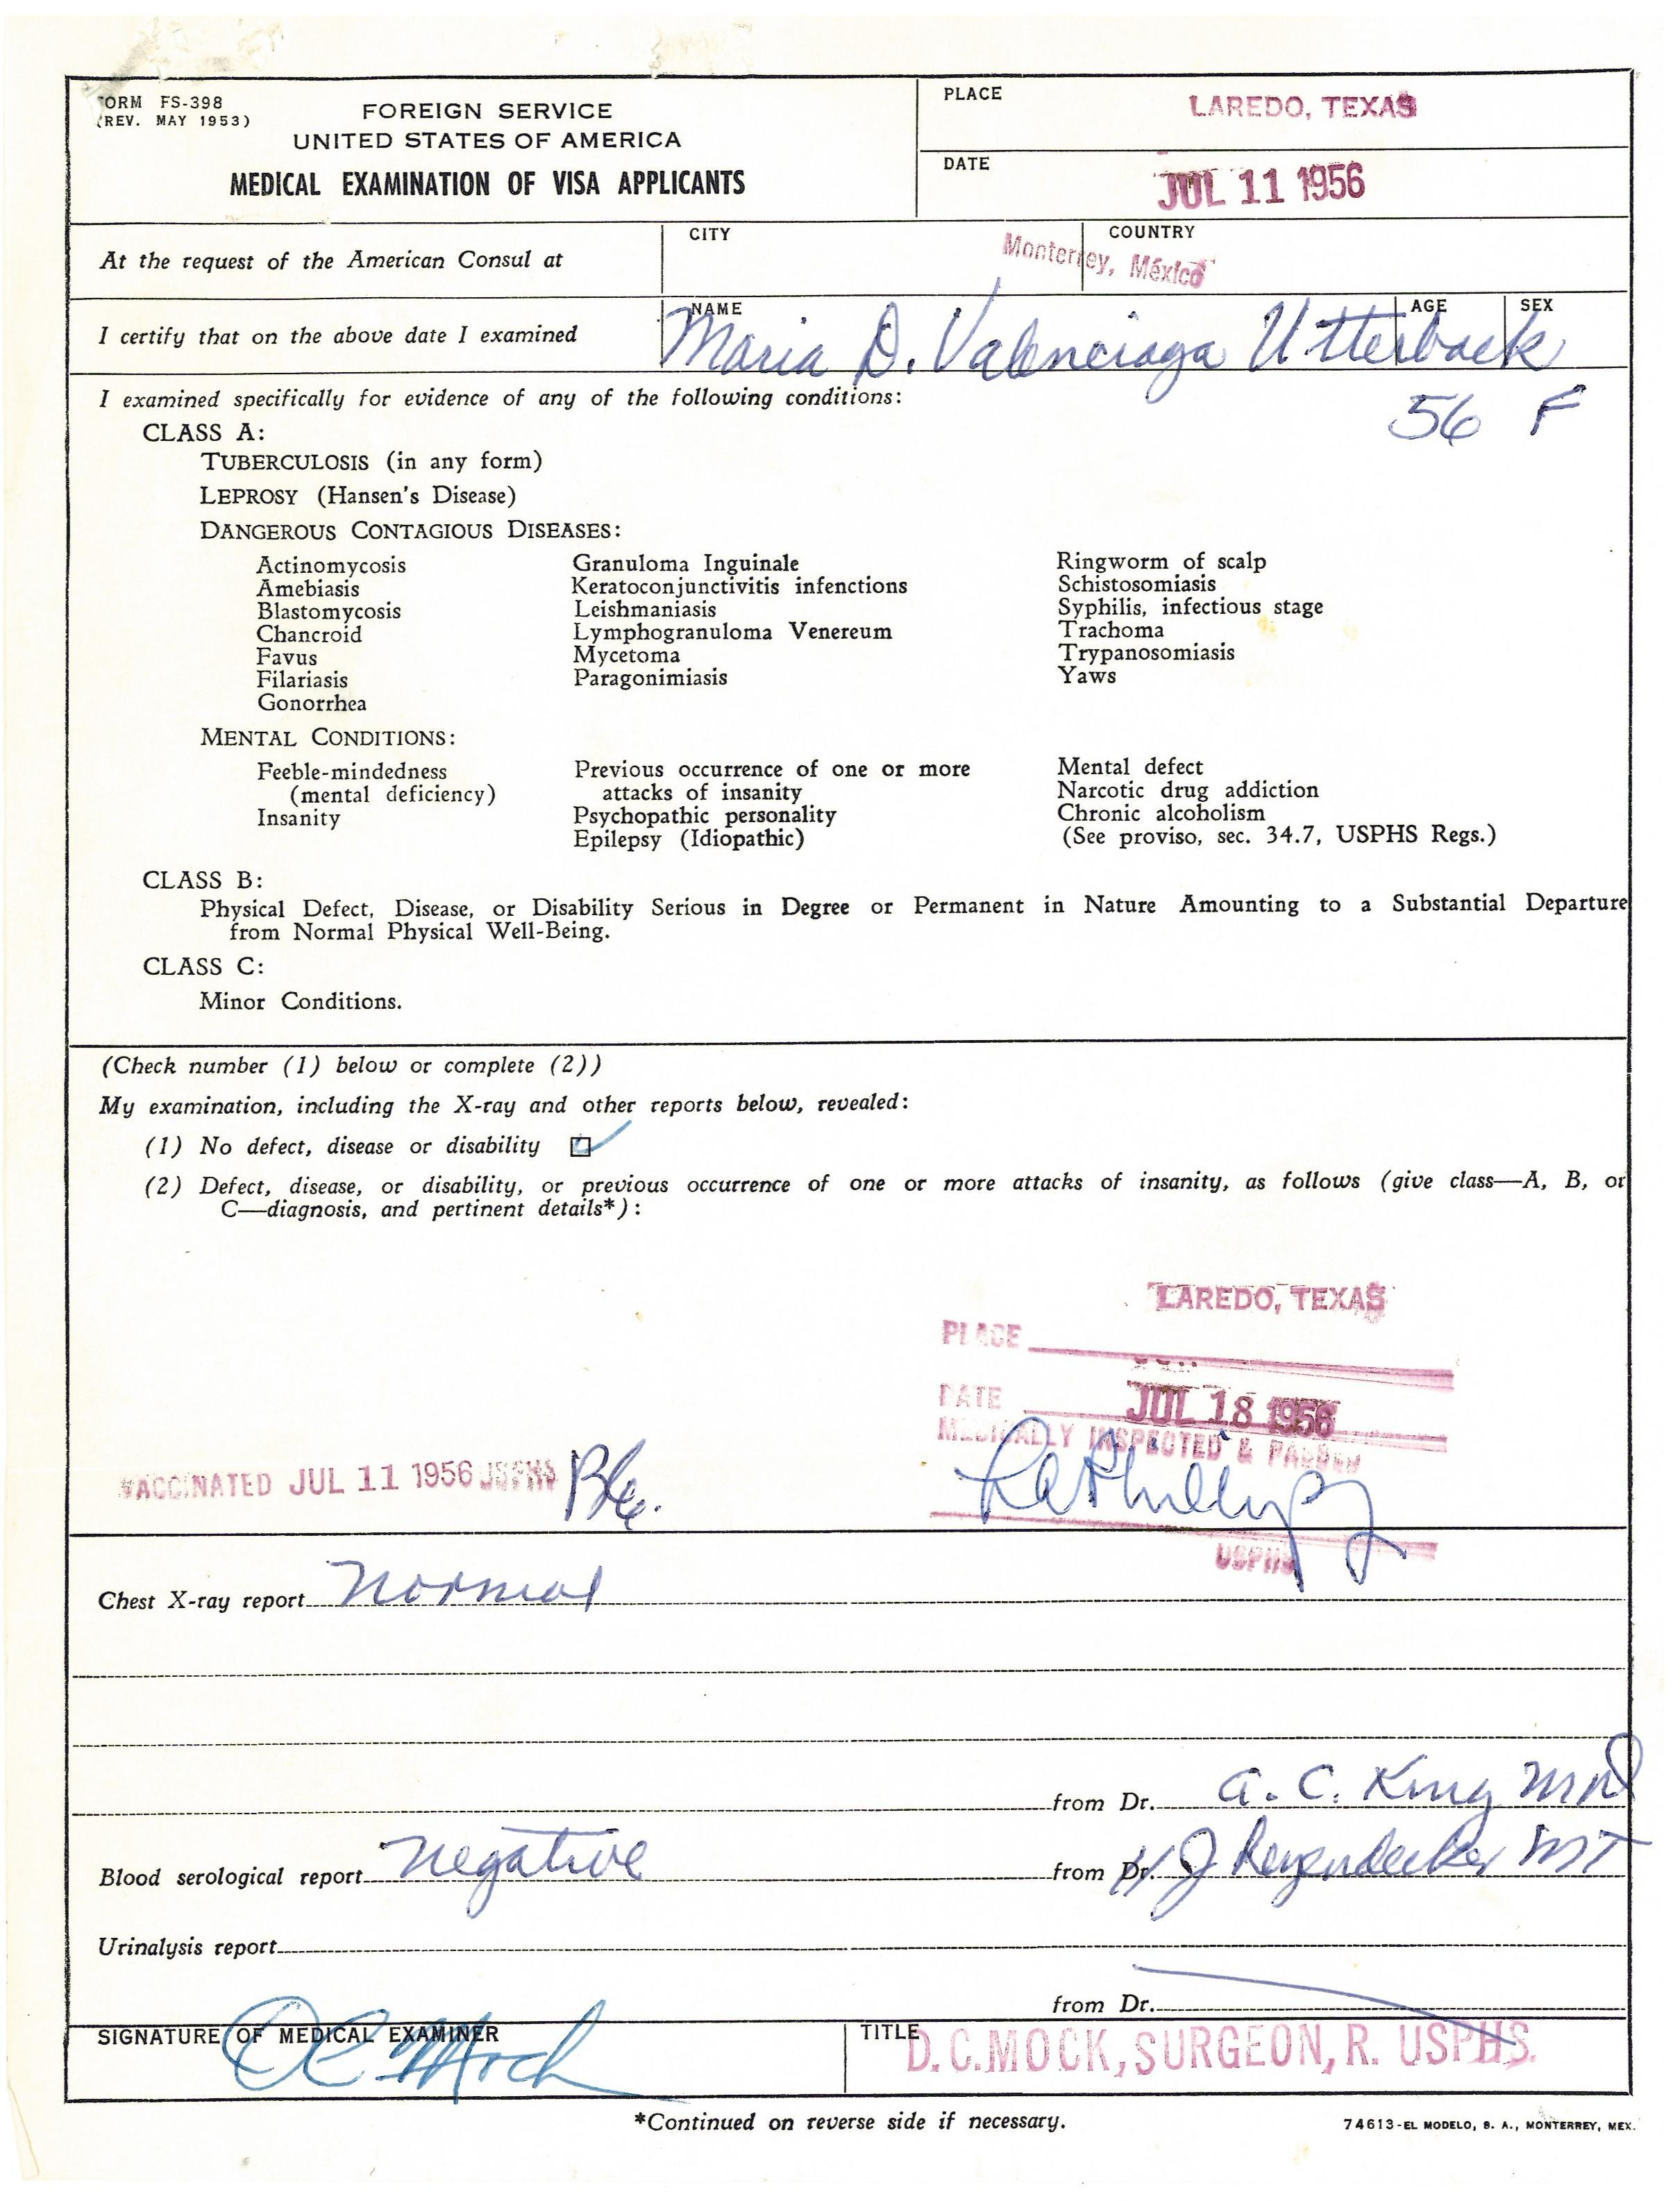 FORM FS-398
(REV. MAY 1953)
FOREIGN SERVICE
UNITED STATES OF AMERICA
MEDICAL EXAMINATION OF VISA APPLICANTS
PLACE
LAREDO, TEXAS
DATE
JUL 11 1956
At the request of the American Consul at
CITY
COUNTRY
Monterrey, México
I certify that on the above date I examined
NAME
AGE
SEX
Maria D. Valenciaga Utterback
56 F
I examined specifically for evidence of any of the following conditions:
CLASS A:
TUBERCULOSIS (in any form)
LEPROSY (Hansen's Disease)
DANGEROUS CONTAGIOUS DISEASES:
Actinomycosis
Amebiasis
Blastomycosis
Chancroid
Favus
Filariasis
Gonorrhea
Granuloma Inguinale
Keratoconjunctivitis infenctions
Leishmaniasis
Lymphogranuloma Venereum
Mycetoma
Paragonimiasis
Ringworm of scalp
Schistosomiasis
Syphilis, infectious stage
Trachoma
Trypanosomiasis
Yaws
MENTAL CONDITIONS:
Feeble-mindedness
(mental deficiency)
Insanity
Previous occurrence of one or more
attacks of insanity
Psychopathic personality
Epilepsy (Idiopathic)
Mental defect
Narcotic drug addiction
Chronic alcoholism
(See proviso, sec. 34.7, USPHS Regs.)
CLASS B:
Physical Defect, Disease, or Disability Serious in Degree or Permanent in Nature Amounting to a Substantial Departure
from Normal Physical Well-Being.
CLASS C:
Minor Conditions.
(Check number (1) below or complete (2))
My examination, including the X-ray and other reports below, revealed:
(1) No defect, disease or disability
(2) Defect, disease, or disability, or previous occurrence of one or more attacks of insanity, as follows (give class—A, B, or
C—diagnosis, and pertinent details*):
LAREDO, TEXAS
PLACE
DATE JUL 18 1956
MEDICALLY INSPECTED & PASSED
Phillips
USPHS
VACCINATED JUL 11 1956 USPHS
Chest X-ray report normal
from Dr. A. C. King MD
Blood serological report negative
from Dr. H J MT
Urinalysis report
from Dr.
SIGNATURE OF MEDICAL EXAMINER
DC Mock
TITLE
D.C.MOCK, SURGEON, R. USPHS.
*Continued on reverse side if necessary.
74613-EL MODELO, S. A., MONTERREY, MEX.